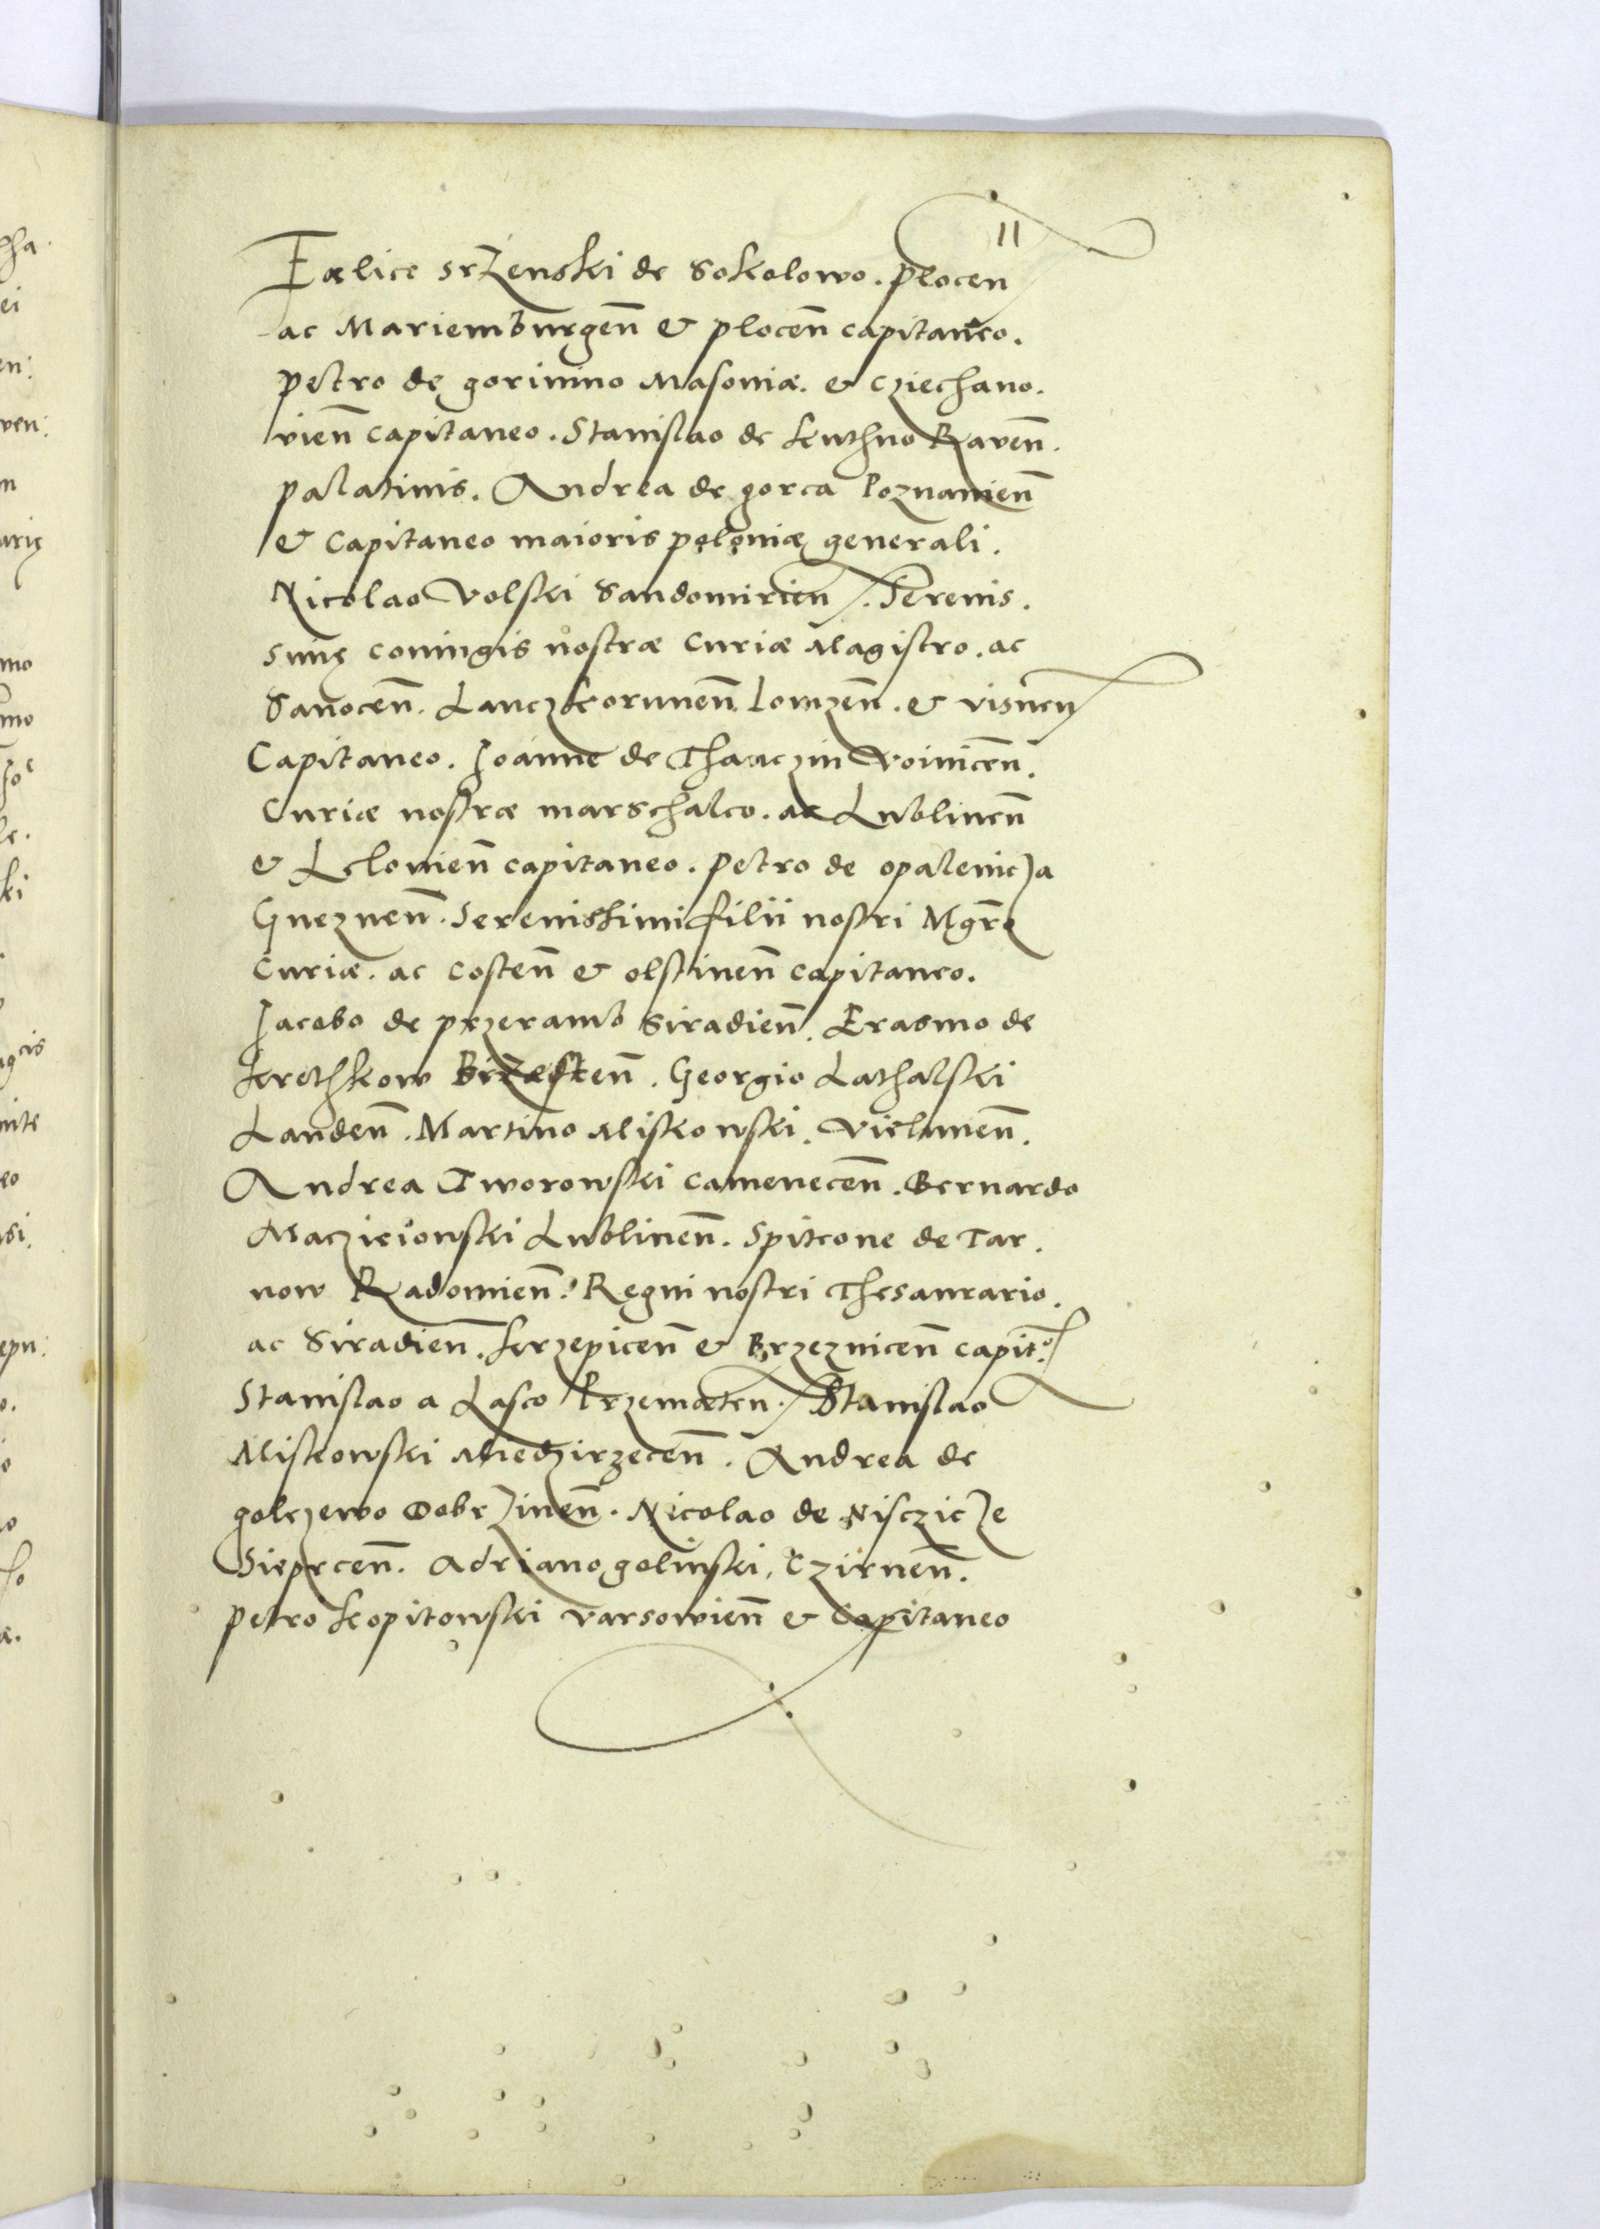 11
Fælice srzenski de Sokolowo. plocen
ac Mariemburgeñ & ploceñ capitaneo.
petro de gorinino Masoniæ. & cziechano.
vieñ capitaneo. Stanislao de kuthno Raveñ.
palatinis. Andrea de gorca Poznanieñ
& Capitaneo maioris polonię generali.
Nicolao Volski Sandomirien. Serenis.
simę coniugis nostræ Curiæ Magistro. ac
Sanoceñ. Lanczkoruneñ Lomzeñ. & visnen
Capitaneo. Joanne de Thanczin Voiniceñ.
Curiæ nostræ marschalco. ac Lublineñ
& Lelovieñ capitaneo. petro de opalenicza
Gnezneñ. Serenissimi filii nostri Mgr̃o
Curiæ. ac Costeñ & olstineñ capitaneo.
Jacobo de przeramb Siradieñ. Erasmo de
krethkow Brzæsteñ. Georgio Lathalski
Landeñ. Martino Miskowski. Vieluneñ.
Andrea Tworowski Cameneceñ. Bernardo
Maczieiowski Lublineñ. Spitcone de Tar.
now Radomieñ. Regni nostri Thesaurario.
ac Siradieñ. krzepiceñ & Brzezniceñ capit.º
Stanislao a Lasco Przemæten. Stanislao
Miskowski Miedzirzeceñ. Andrea de
golczewo Dobrzineñ. Nicolao de Nisczicze
Sieprceñ. Adriano golinski, Czirneñ.
petro kopitowski varsowieñ & Capitaneo